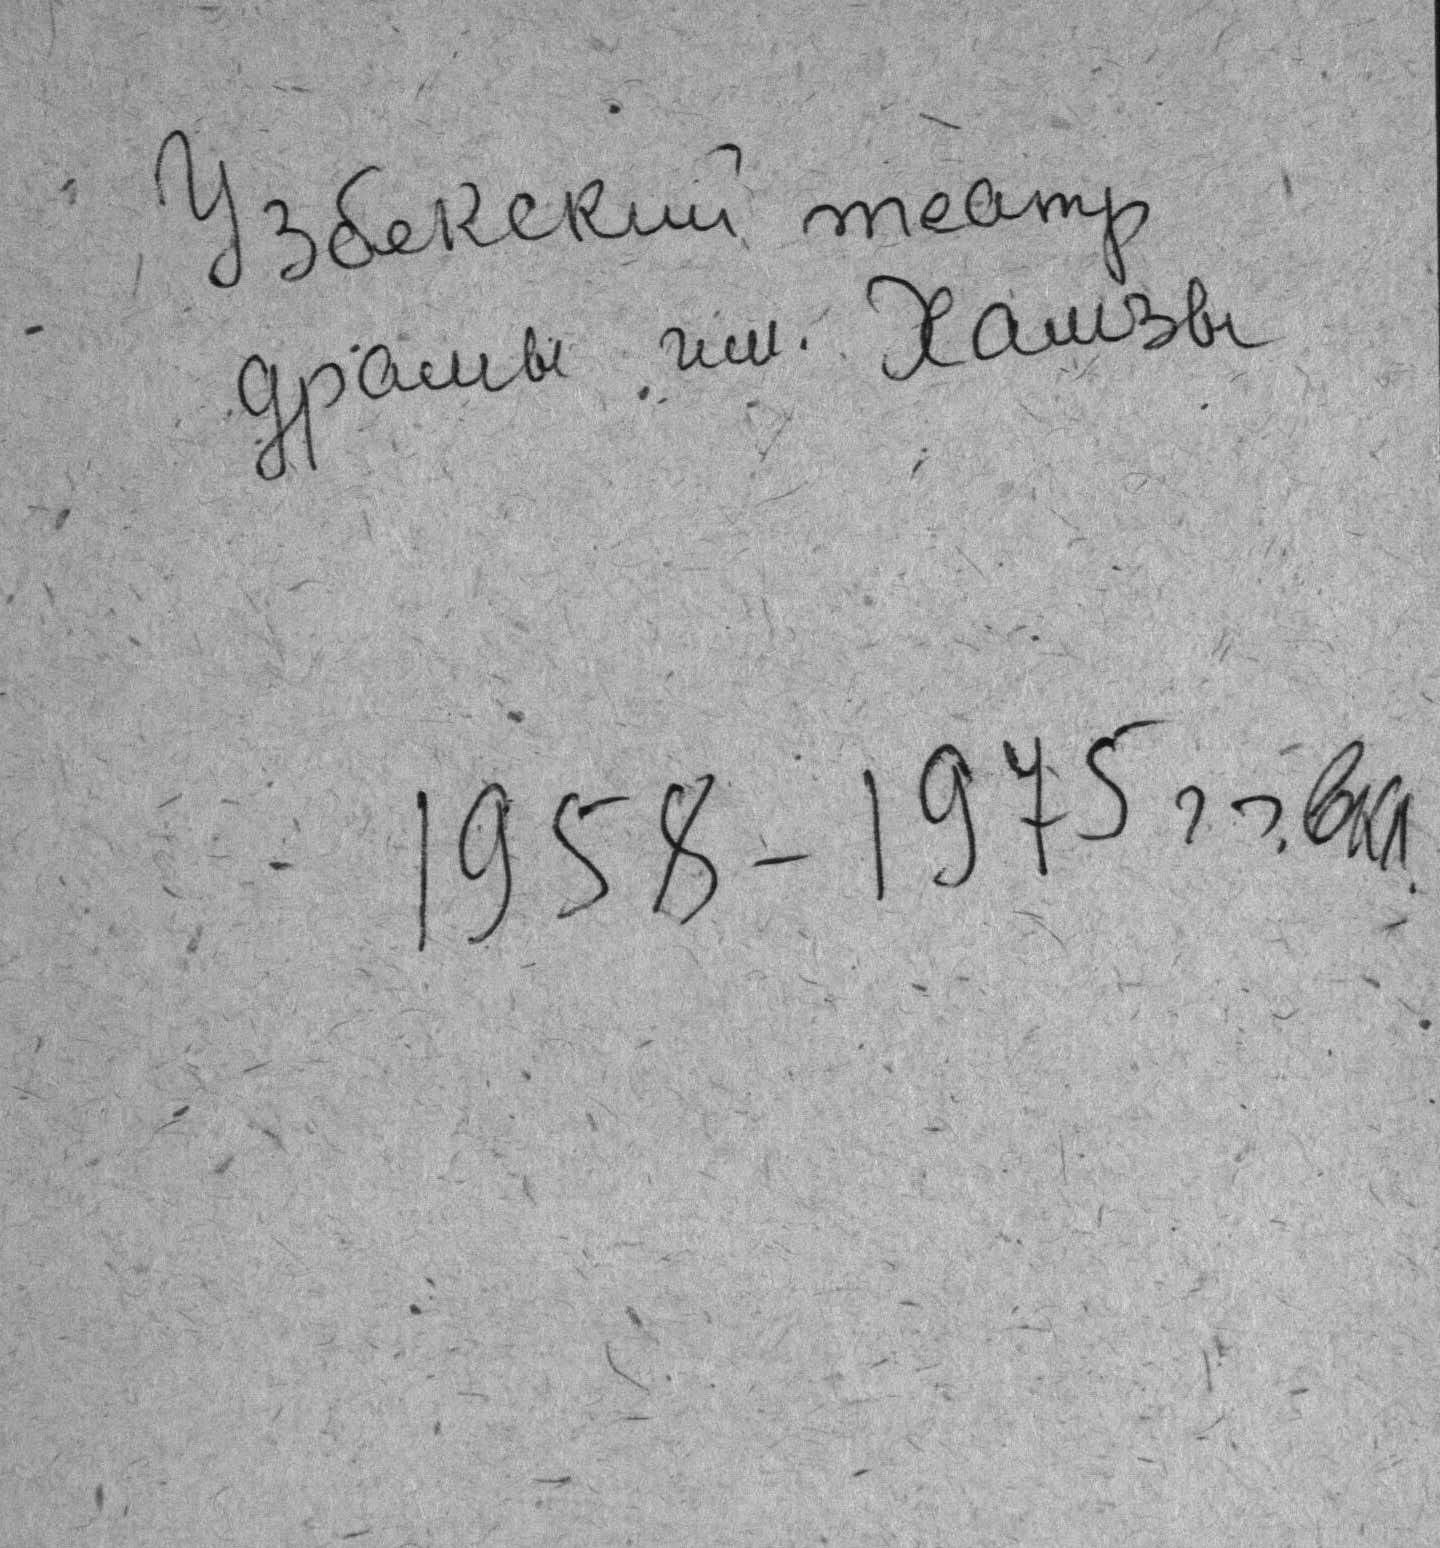 Узбекский театр
драмы им. Хамзы
1958-1975 г.г. вкл.